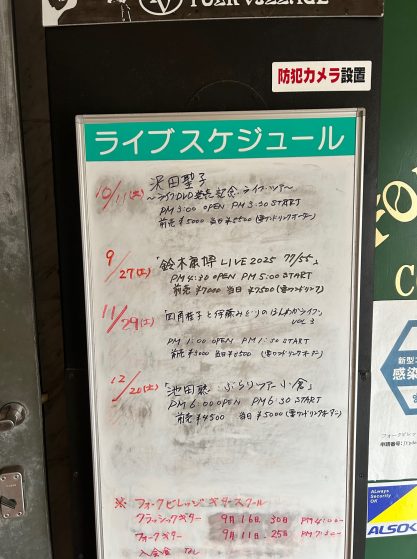 FOLK VILLAGE
防犯カメラ設置
ライブスケジュール
10/11(土) 沢田聖子
〜ライブDVD発売記念 ライブツアー〜
PM 3:00 OPEN PM 3:30 START
前売 ¥5000 当日 ¥5500 (要ワンドリンクオーダー)
9/27(土) 「鈴木康博 LIVE 2025 77/55」
PM 4:30 OPEN PM 5:00 START
前売 ¥7000 当日 ¥7500 (要ワンドリンク)
11/29(土) 「四角佳子と伊藤みどりのほんわかライブ」
VOL 3
PM 1:00 OPEN PM 1:30 START
(要ワンドリンクオーダー)
12/20(土) 「池田聡 ぶらりツアー小倉」
PM 6:00 OPEN PM 6:30 START
前売 ¥4500 当日 ¥5000 (要ワンドリンクオーダー)
※ フォークビレッジ ギタースクール
クラシックギター 9月16日. 30日 PM 4:00〜
フォークギター 9月11日. 25日 PM 7:30〜
入会金 なし
新型コ
感染
フォークビレッ
申請番号:
Always
Security
OK
ALSOK